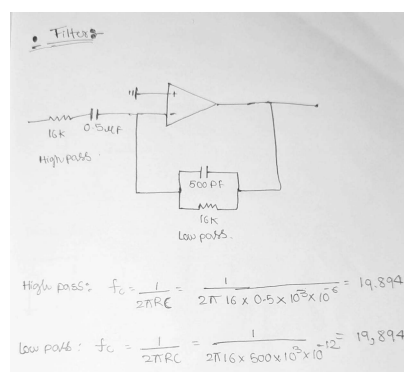 Filter:
+
-
16K 0.5µF
High pass:
500 PF
16K
Low pass.
High pass: fc = 1/2πRC = 1/2π 16 x 0.5 x 10³ x 10⁻⁶ = 19.894
Low pass: fc = 1/2πRC = 1/2π 16 x 500 x 10³ x 10⁻¹² = 19,894